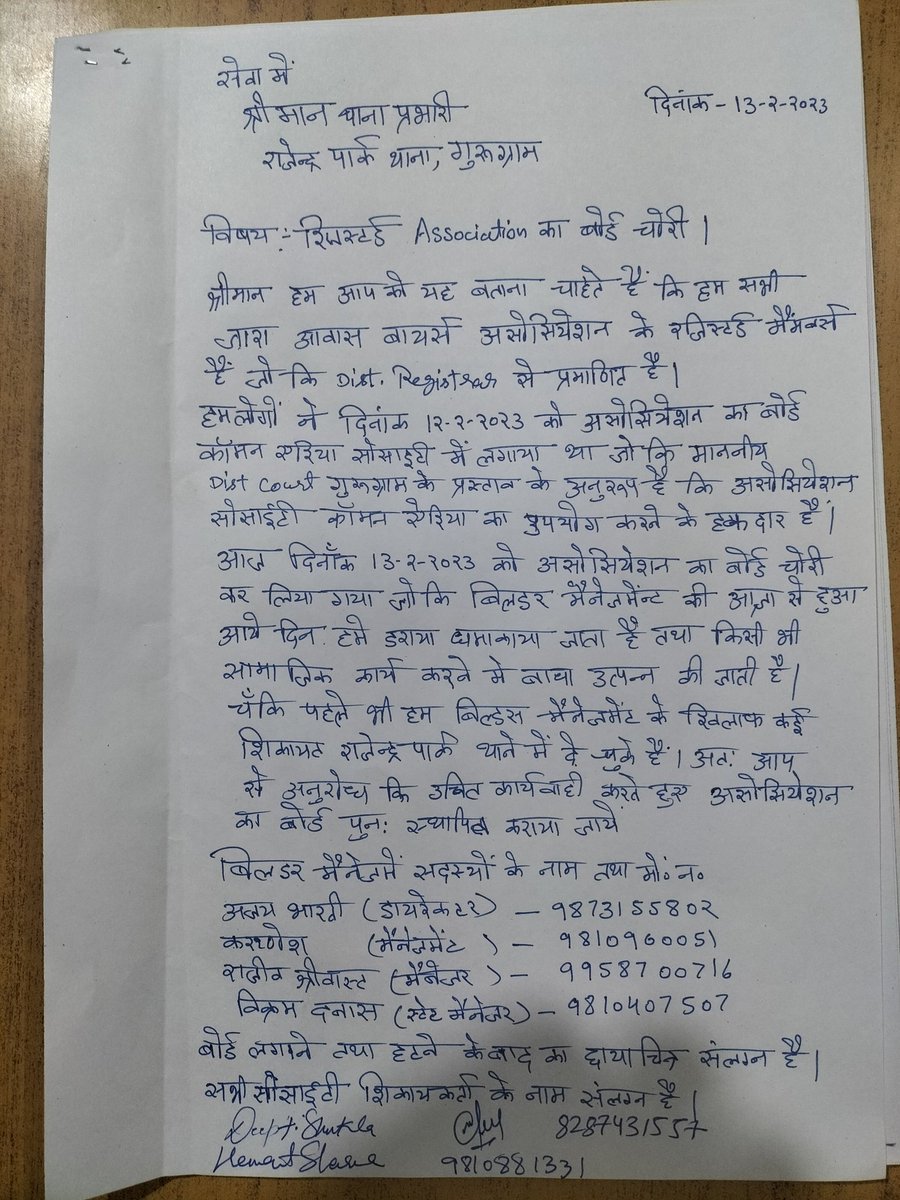 सेवा में
श्रीमान थाना प्रभारी
दिनांक - 13-2-2023
राजेन्द्र पार्क थाना, गुरूग्राम
विषय :- रजिस्टर्ड Association का बोर्ड चोरी |
श्रीमान हम आप को यह बताना चाहेते हैं कि हम सभी
तारा आवास बायर्स असोसियेशन के रजिस्टर्ड मैंमबर्स
हैं जो कि Dist. Registrar से प्रमाणित है |
हमलोगों ने दिनांक 12-2-2023 को असोसियेशन का बोर्ड
कॉमन एरिया सोसाइटी में लगाया था जो कि माननीय
Dist Court गुरूग्राम के प्रस्ताव के अनुरूप है कि असोसियेशन
सोसाईटी कॉमन ऐरिया का उपयोग करने के हकदार हैं |
आज दिनाँक 13-2-2023 को असोसियेशन का बोर्ड चोरी
कर लिया गया जो कि बिलडर मैनेजमेंट की आज्ञा से हुआ
आये दिन हमे डराया धमाकाया जाता है तथा किसी भी
सामाजिक कार्य करने मे बाधा उत्पन्न की जाती है |
चूँकि पहले भी हम बिल्डर मैनेजमेंट के खिलाफ कई
शिकायत राजेन्द्र पार्क थाने में दे चुके हैं | अतः आप
से अनुरोध कि उचित कार्यवाही करते हुए असोसियेशन
का बोर्ड पुनः स्थापित कराया जाये
बिलडर मैनेजमें सदस्यों के नाम तथा मो॰ न॰
(डायरेकटर) - 9873155802
(मैंनेजमेंट) - 9810960051
राजीव श्रीवास्त (मैंनेजर) - 9958700716
विक्रम (स्टेट मैनेजर) - 9810407507
बोर्ड लगाने तथा हटने के बाद का छायाचित्र संलग्न है |
सभी सोसाईटी शिकायकर्ता के नाम संलग्न है |
Deepti Shukla 8287431557
Hemant 9810881331